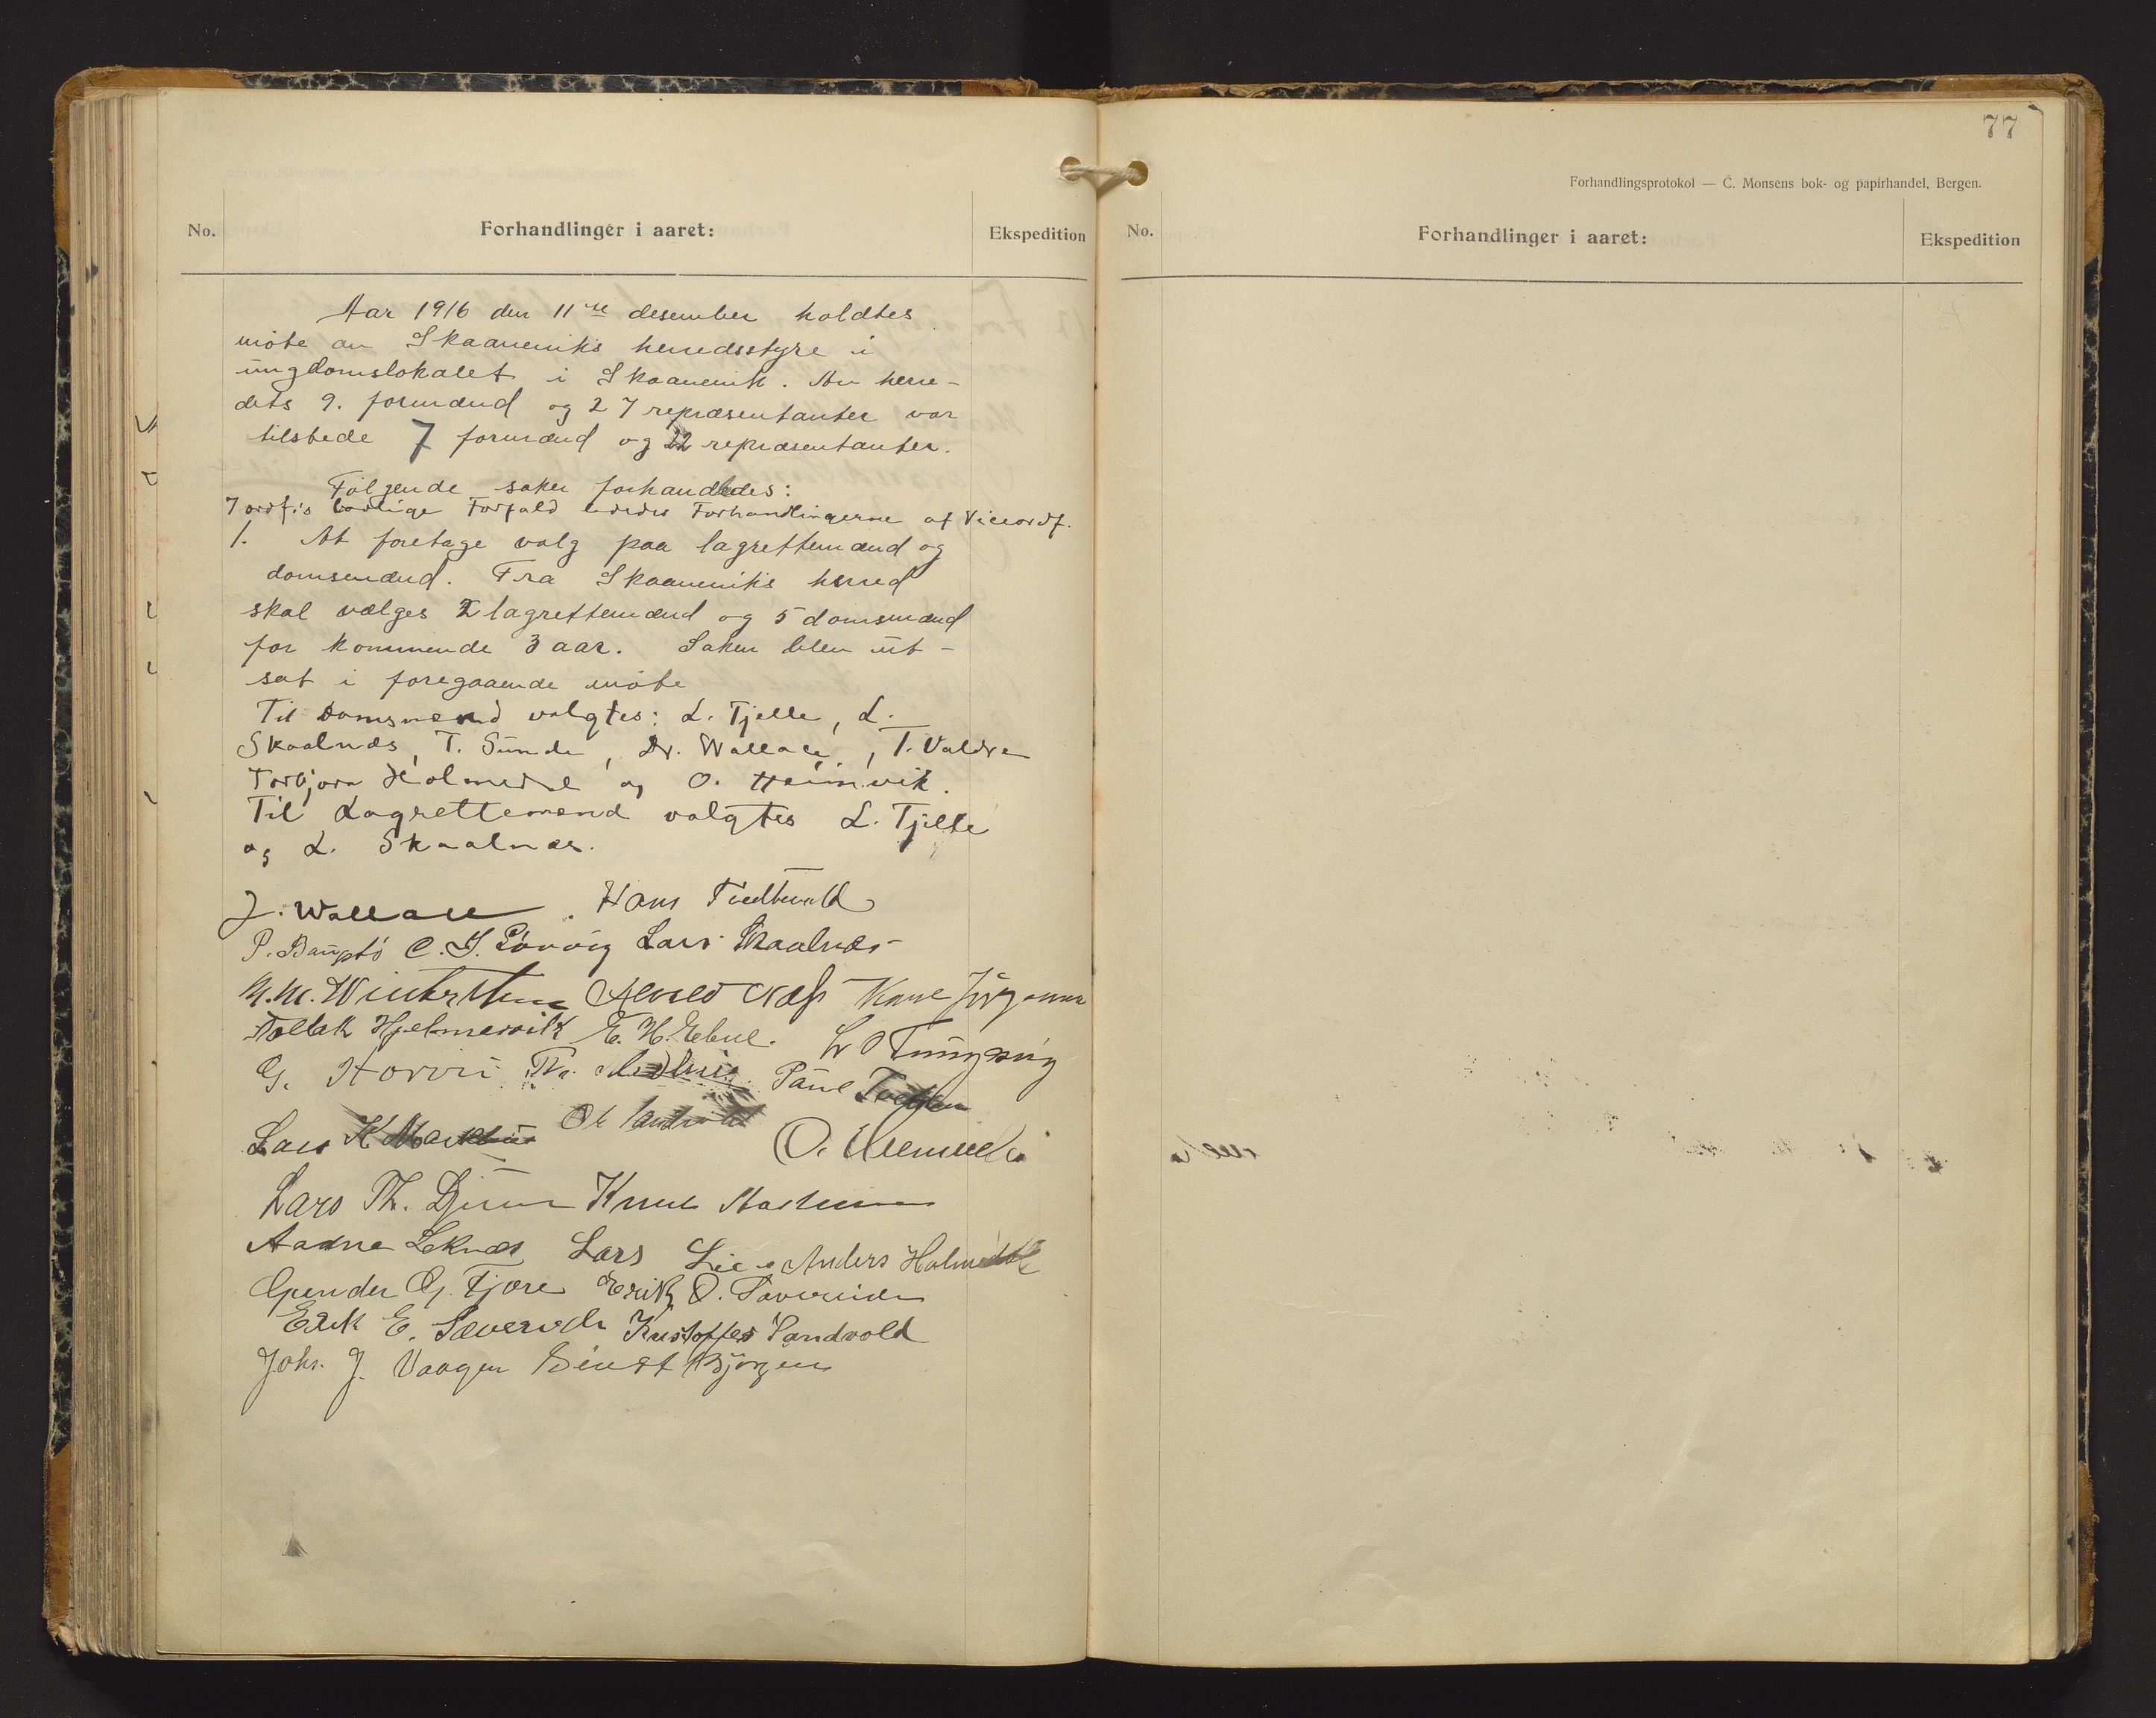 No.
Forhandlinger i aaret:
Ekspedition
Aar 1916 den 11te desember holdtes
møte av Skaaneviks herredsstyre i
ungdomslokalet i Skaanevik. Av herre-
dets 9. formænd og 27 repræsentanter var
tilstede 7 formænd og 22 repræsentanter.
Følgende saker forhandledes:
I ordf.s lovlige Forfald lededes Forhandlingerne af Viceordf.
1. At foretage valg paa lagrettemænd og
domsmænd. Fra Skaaneviks herred
skal vælges 2 lagrettemænd og 5 domsmænd
for kommende 3 aar. Saken blev ut-
sat i foregaaende møte
Til Domsmænd valgtes: L. Tjelle, L.
Skaalnæs, T. Sunde, Dr. Wallace, T. Valdre
Torbjørn Holmedal og O. Heimvik.
Til Lagrettemænd valgtes L. Tjelle
og L. Skaalnæs.
J. Wallace. Hans
P. C. Lars Skaalnæs
M. M. Næss
Tollak Hjelmervik E. H.
G. Paul
Lars K. O.
Lars Th. Knut
Aadne Leknæs Lars Lie Anders Holmedal
G. Fjære Erik O.
Erik E. Kristoffer Sandvold
Johs. J. Vaagen
77
Forhandlingsprotokol — C. Monsens bok- og papirhandel, Bergen.
No.
Forhandlinger i aaret:
Ekspedition